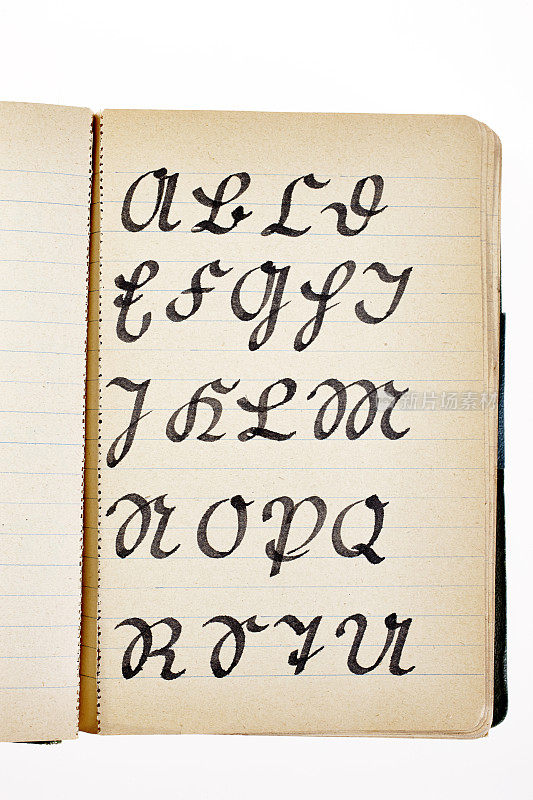 A B C D
E F G H I
J K L M
N O P Q
R S T U
新片场素材